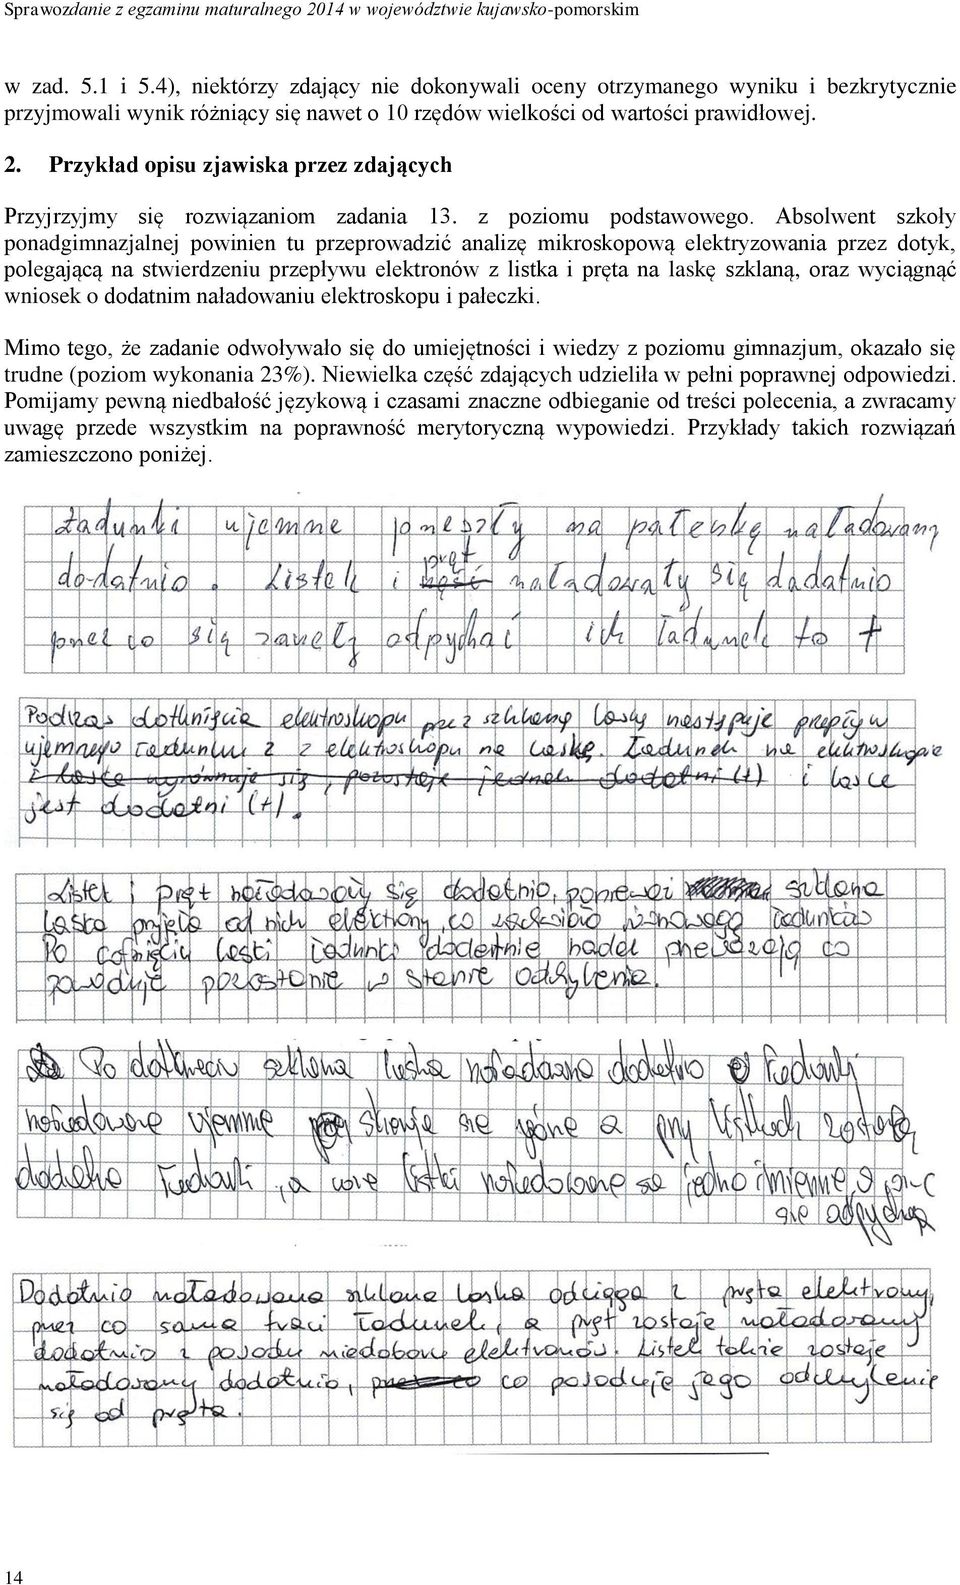 Sprawozdanie z egzaminu maturalnego 2014 w województwie kujawsko-pomorskim
w zad. 5.1 i 5.4), niektórzy zdający nie dokonywali oceny otrzymanego wyniku i bezkrytycznie
przyjmowali wynik różniący się nawet o 10 rzędów wielkości od wartości prawidłowej.
2. Przykład opisu zjawiska przez zdających
Przyjrzyjmy się rozwiązaniom zadania 13. z poziomu podstawowego. Absolwent szkoły
ponadgimnazjalnej powinien tu przeprowadzić analizę mikroskopową elektryzowania przez dotyk,
polegającą na stwierdzeniu przepływu elektronów z listka i pręta na laskę szklaną, oraz wyciągnąć
wniosek o dodatnim naładowaniu elektroskopu i pałeczki.
Mimo tego, że zadanie odwoływało się do umiejętności i wiedzy z poziomu gimnazjum, okazało się
trudne (poziom wykonania 23%). Niewielka część zdających udzieliła w pełni poprawnej odpowiedzi.
Pomijamy pewną niedbałość językową i czasami znaczne odbieganie od treści polecenia, a zwracamy
uwagę przede wszystkim na poprawność merytoryczną wypowiedzi. Przykłady takich rozwiązań
zamieszczono poniżej.
Ładunki ujemne poneszły na pałeczkę naładowaną
dodatnio. Listek i pręt naładowały się dadatnio
przez co się zaczęły odpychać ich ładunek to +
Podczas dotknięcia elektroskopu przez szklaną laskę następuje przepływ
ujemnego ładunku z z elektroskopu na laskę. Ładunek na elektroskopie
i laskę wyrównuje się, pozostaje jednak dodatni (+) i lasce
jest dodatni (+).
Listek i pręt naładowały się dodatnio, ponieważ szklana
laska przyjęła od nich elektrony, co równowagę ładunków
Po cofnięciu laski ładunki dodatnie nadal przeważają co
powoduje pozostanie w stanie odchylenia.
Po dotknięciu szklana laska naładowana dodatnio Ładunki
naładowane ujemne się a przy listkach zostają
dodatnie ładunki, a listki naładowane są jednoimiennie, więc
się odpychają
Dodatnio naładowana szklana laska odciąga z pręta elektrony,
przez co sama traci ładunek, a pręt zostaje naładowany
dodatnio z powodu niedoboru elektronów. Listek także zostaje
naładowany dodatnio, co powoduje jego odchylenie
się od pręta.
14